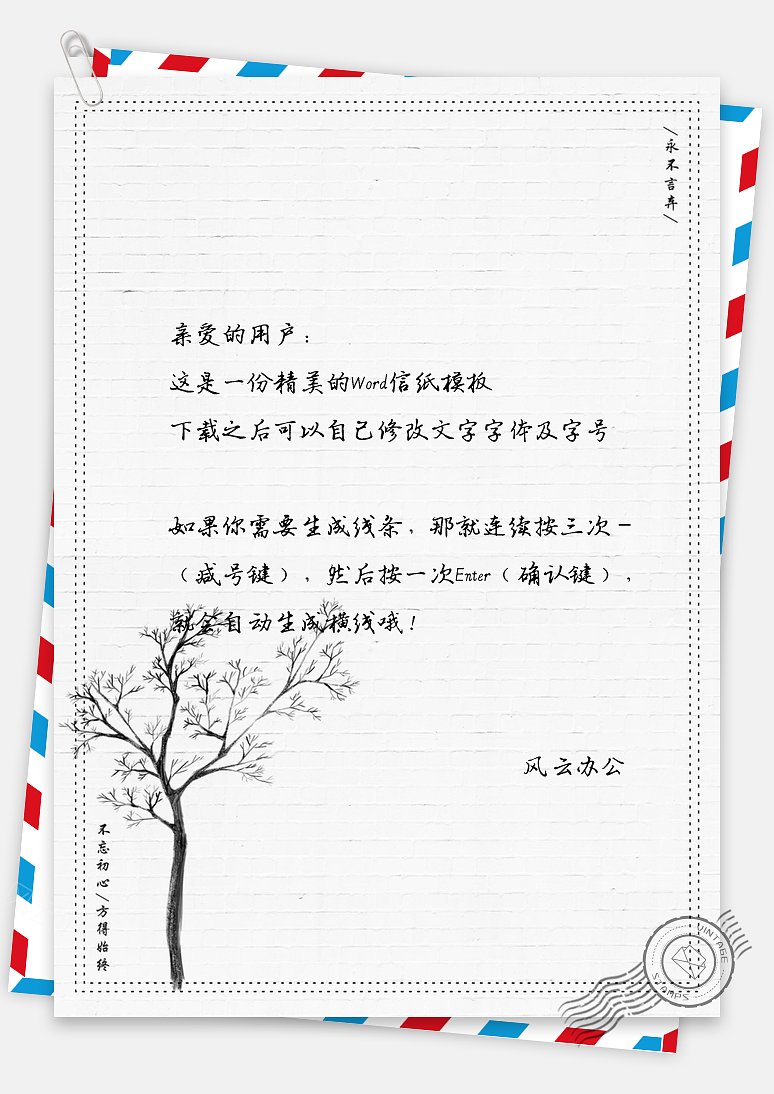 \永不言弃\
亲爱的用户：
这是一份精美的Word信纸模板
下载之后可以自己修改文字字体及字号
如果你需要生成线条，那就连续按三次-
（减号键），然后按一次Enter（确认键），
就会自动生成横线哦！
风云办公
不忘初心\方得始终
VINTAGE
STAMPS